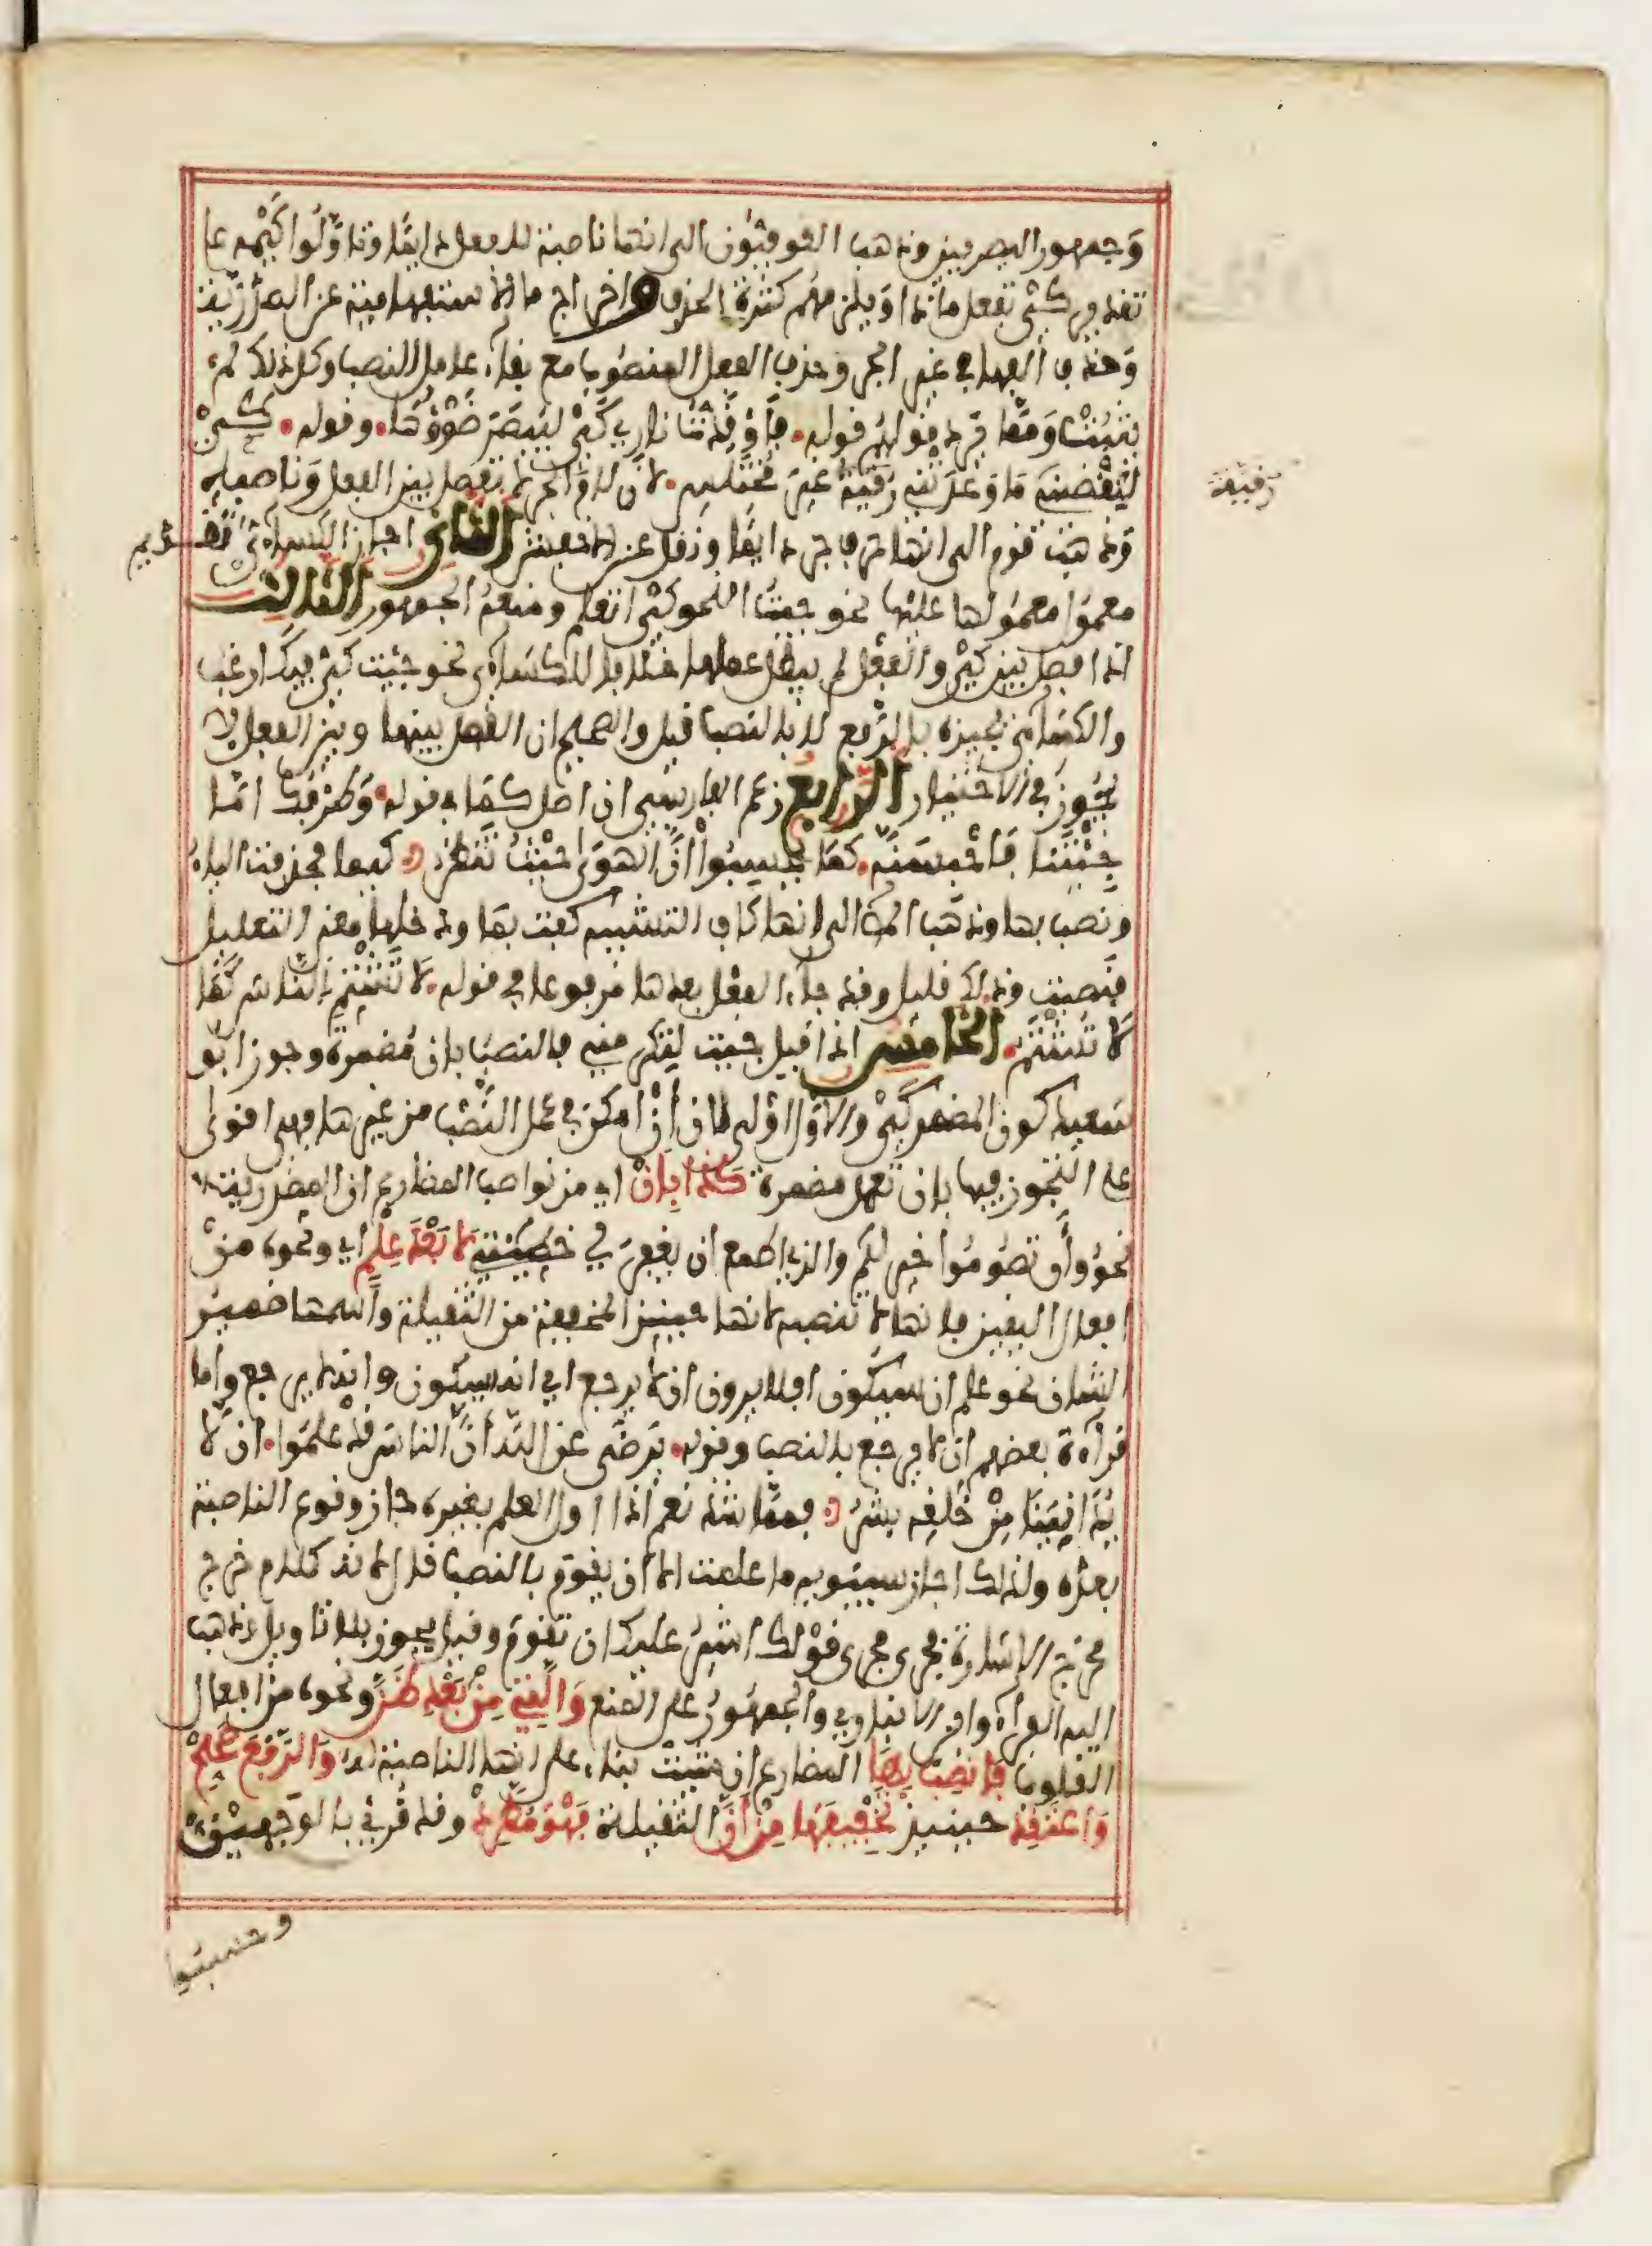 وجمهور البصريين وذهب الكوفيون الى انها ناصبة للفعل دايما وتاولوا كيمه على
تقدير كي تفعل ماذا ويلزمهم كثرة الحذف واخراج ما الاستفهامية عن الصدر
وحذف الفها في غير الجر وحذف الفعل المنصوب مع بقاء عامل النصب وكل ذلك لم
يثبت ومما قولهم قوله فاوقدت ناري كي ليبصر ضوؤها وقوله كي
لتقضيني ما وعدتني رقية غير مختلس لان لام الجر لا تفصل بين الفعل وناصبه
رقيقة
وذهب قوم الى انها حرف جر دايما ونقل عن الاخفش الثاني اجاز الكساءي تقديم
معمول معمولها عليها نحو جيت النحو كي اتعلم ومنعه الجمهور الثالث
اذا فصل بين كي والفعل لم يبطل عملها خلافا للكساءي نحو جيت كي فيك ارغب
والكساءي يجيزه بالرفع لا بالنصب قيل والصحيح ان الفصل بينها وبين الفعل لا
يجوز في الاختيار الرابع زعم الفارسي ان اصل كما في قوله وطرفك اما
جيتنا فاحبسنه كما يحسبوا ان الهوى حيث تنظر كيما فحذفت الياء
ونصب بها وذهب المص الى انها كاف التشبيه كفت بما ودخلها معنى التعليل
فنصبت وذلك قليل وقد جاء الفعل بعدها مرفوعا في قوله لا تشتم الناس كما
لا تشتم الخامس اذا قيل جيت لتكرمني فالنصب بان مضمرة وجوز ابو
سعيد كون المضمر كي والاول اولى لان ان امكن في عمل النصب من غيرها فهي اقوى
على التجوز فيها بان تعمل مضمرة كذا بان اي من نواصب المضارع ان المصدرية
نحو وان تصوموا خير لكم والذي اطمع ان يغفر لي خطيئتي لا بعد علم اي ونحوه من
افعال اليقين فانها لا تنصبه لانها حينيذ المخففة من الثقيلة واسمها ضمير
الشان نحو علم ان سيكون افلا يرون ان لا يرجع اي انه سيكون وانه لا يرجع واما
قراءة بعضهم ان لا يرجع بالنصب وقوله نرضى عن الله ان الناس قد علموا ان لا
يدانينا من خلقه بشر فمما شذ نعم اذا اول العلم بغيره جاز وقوع الناصبة
بعده ولذلك اجاز سيبويه ما علمت الا ان يقوم بالنصب قال لانه كلام خرج
مخرج الاشارة فجرى مجرى قولك اشير عليك ان تقوم وقيل يجوز بلا تاويل ذهب
اليه الفراء وابن الانباري والجمهور على المنع والتي من بعد ظن ونحوه من افعال
القلوب فانصب بها المضارع ان شيت بناء على انها الناصبة له والرفع صحح
واعتقد حينيذ تخفيفها من ان الثقيلة فهو مطرد وقد قرئ بالوجهين
وحسبوا